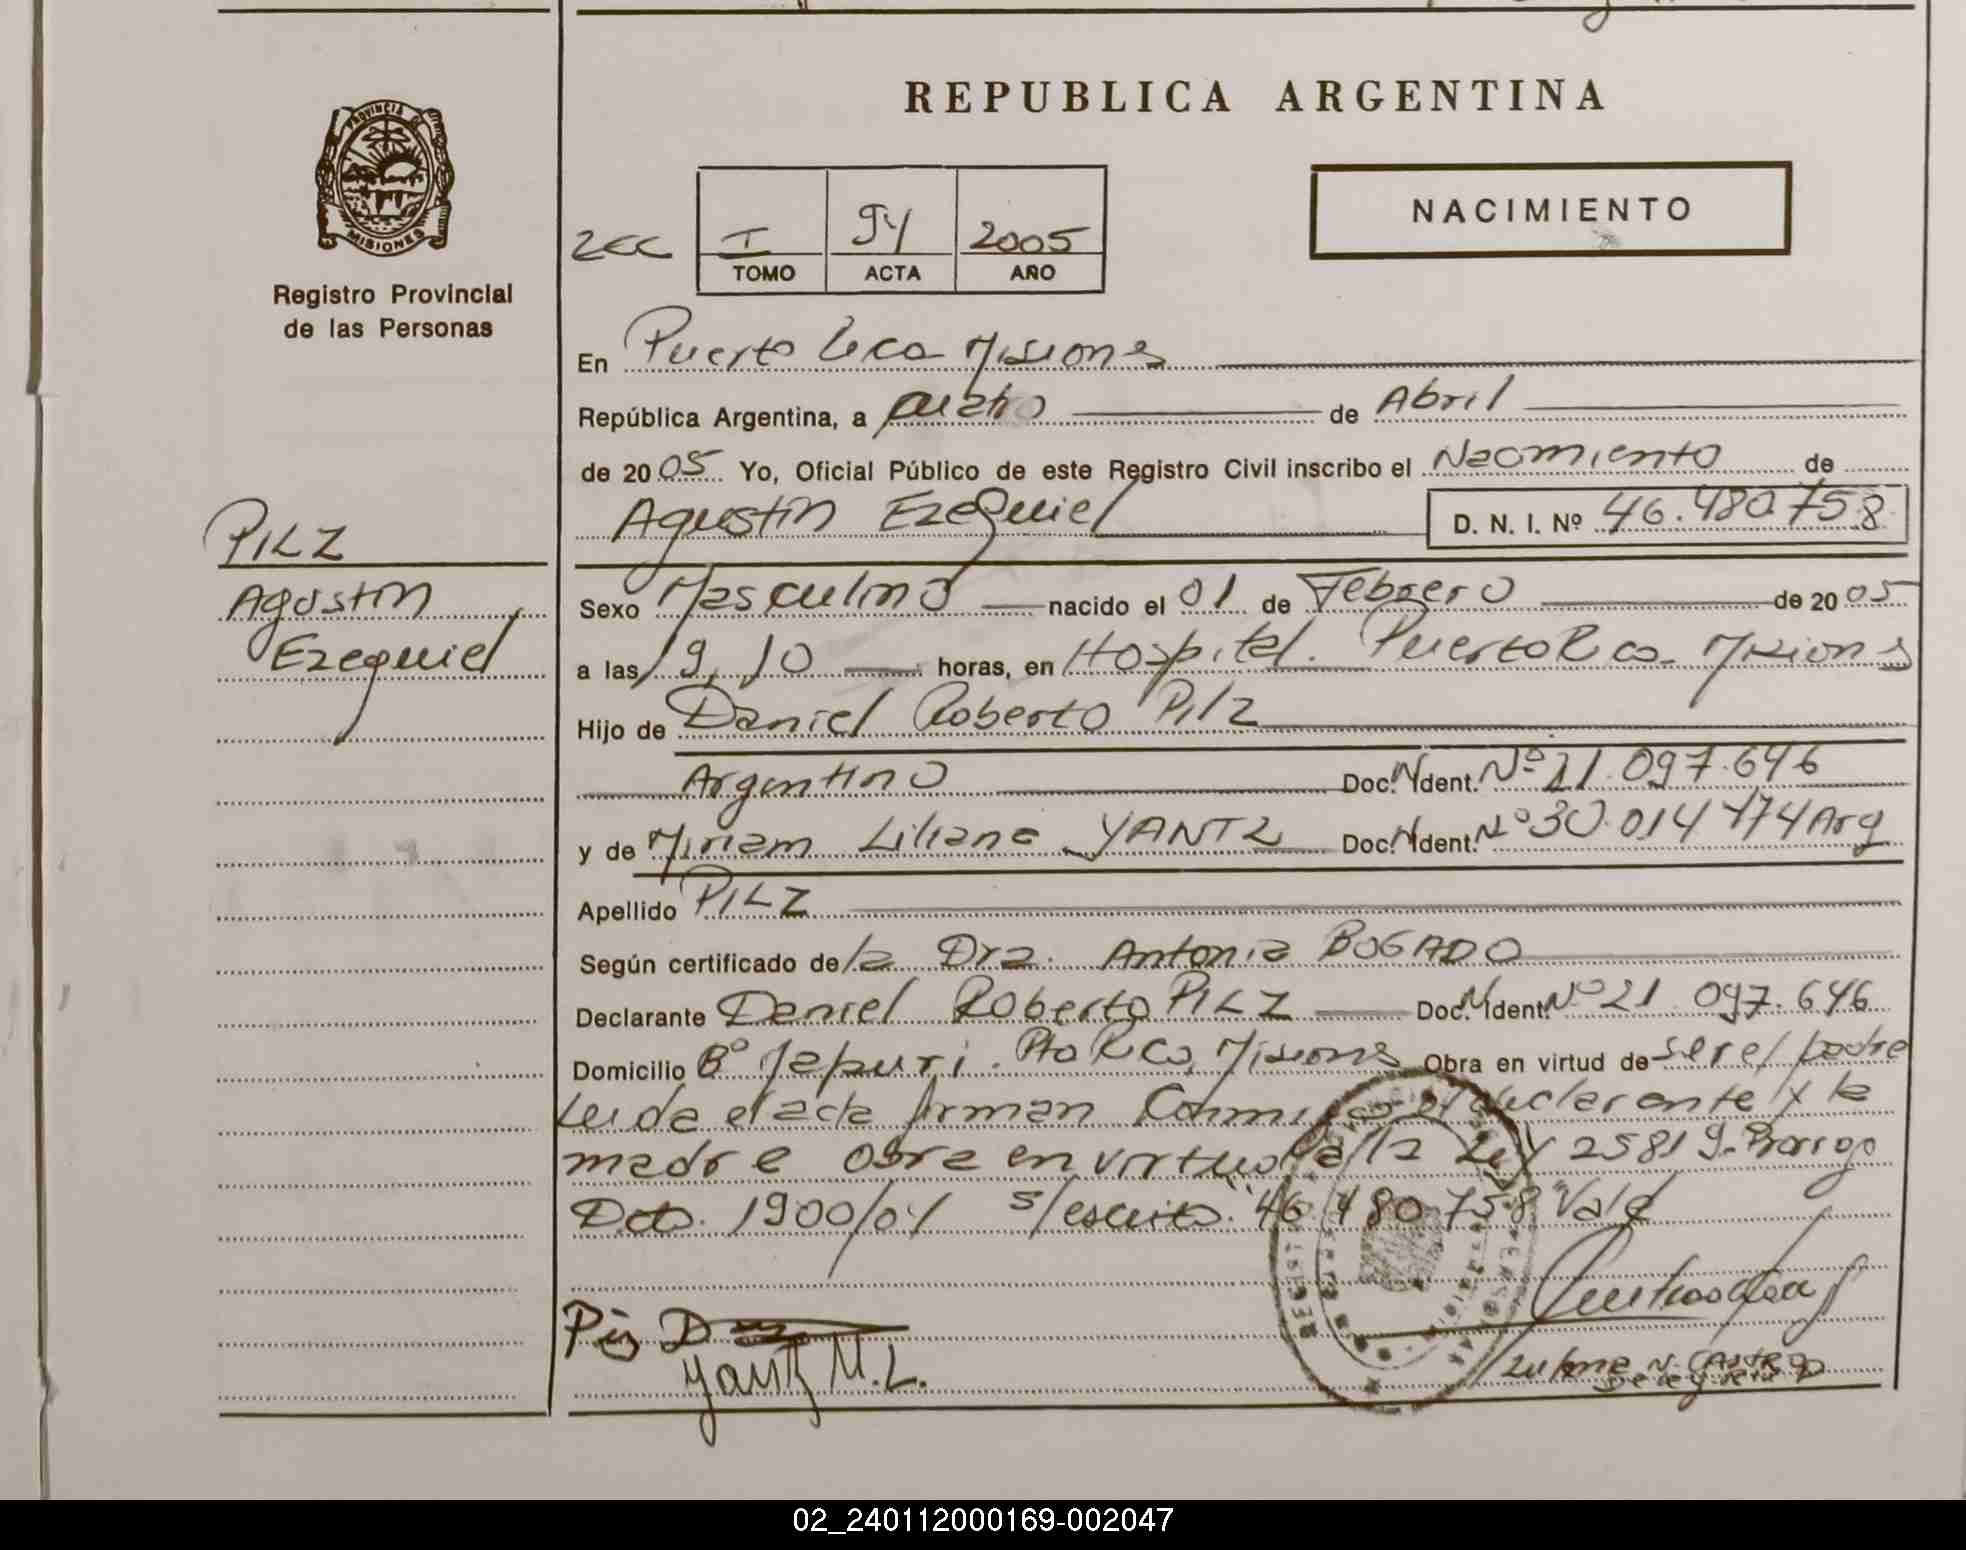 REPUBLICA ARGENTINA
PROVINCIA DE
MISIONES
Registro Provincial
de las Personas
NACIMIENTO
I 94 2005
TOMO ACTA AÑO
En Puerto Rico Misiones
República Argentina, a cuatro de Abril
de 2005 Yo, Oficial Público de este Registro Civil inscribo el Nacimiento de
Agustin Ezequiel D. N. I. Nº 46.480.758
PILZ
Agustin
Ezequiel
Sexo Masculino nacido el 01 de Febrero de 2005
a las 19,10 horas, en Hospital. Puerto Rico. Misiones
Hijo de Daniel Roberto Pilz
Argentino Doc. N Ident. Nº 21.097.646
y de Miriam Liliana YANTZ Doc. N Ident. Nº 30.014 474 Arg
Apellido PILZ
Según certificado de la Dra. Antonia BOGADO
Declarante Daniel Roberto PILZ Doc. N Ident. Nº 21.097.646
Domicilio Bº Tapuri. Pto Rico, Misiones Obra en virtud de ser el padre
Leida el acta firman Conmigo el declarante y la
madre obra en virtud a la Ley 25819-Prorroga
Dcto. 1900/04 s/escrito "46.480.758" Vale
Pilz D
Yantz M.L.
CASTRO
02_240112000169-002047